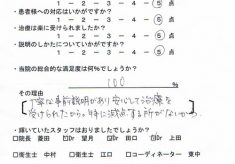 1 - 2 - 3 - 4 - ⑤ 点
・患者様への対応はいかがですか?
1 - 2 - 3 - 4 - ⑤ 点
・治療は楽に受けられましたか?
1 - 2 - 3 - 4 - ⑤ 点
・説明のしかたについていかがですか?
1 - 2 - 3 - 4 - ⑤ 点
・当院の総合的な満足度は何%でしょうか?
100 %
その理由
丁寧な事前説明があり安心して治療を
受けられたから。特に減点する所がないから
・輝いていたスタッフはおりましたでしょうか?
□院長 菱田 ☑Dr 望月 ☑Dr 田口 ☑Dr 上田
□衛生士 中村 □衛生士 江口 □コーディネーター 東中